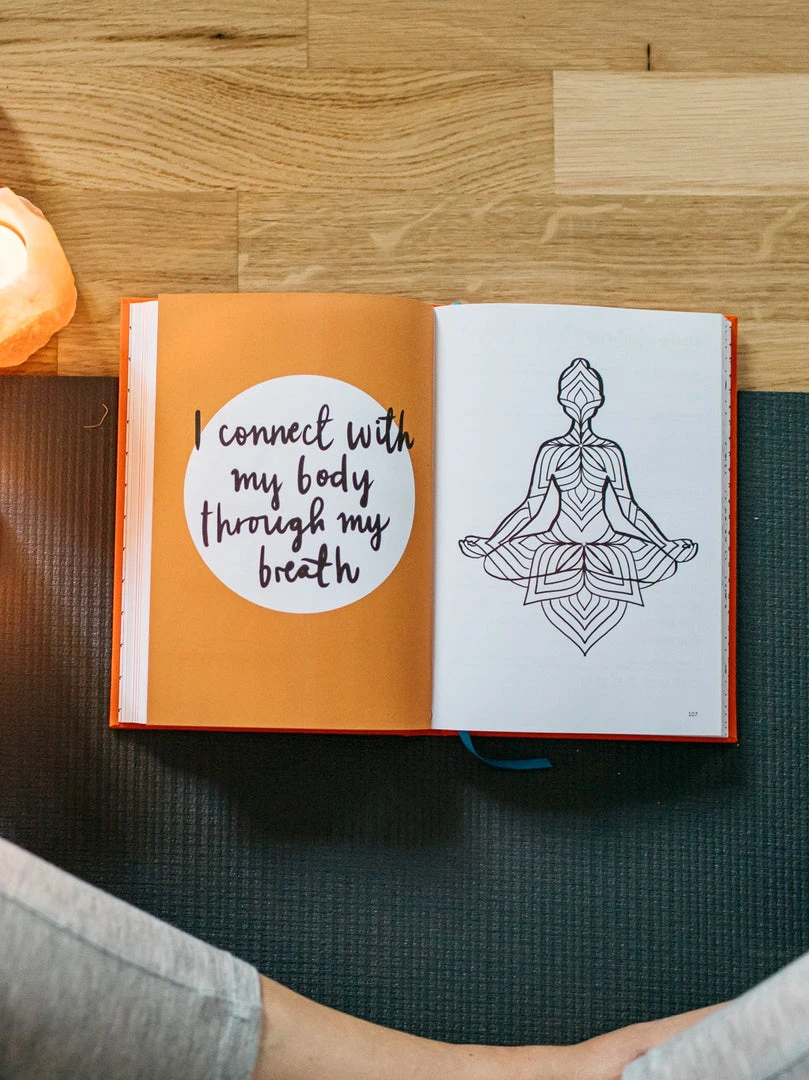 I connect with
my body
through my
breath
107